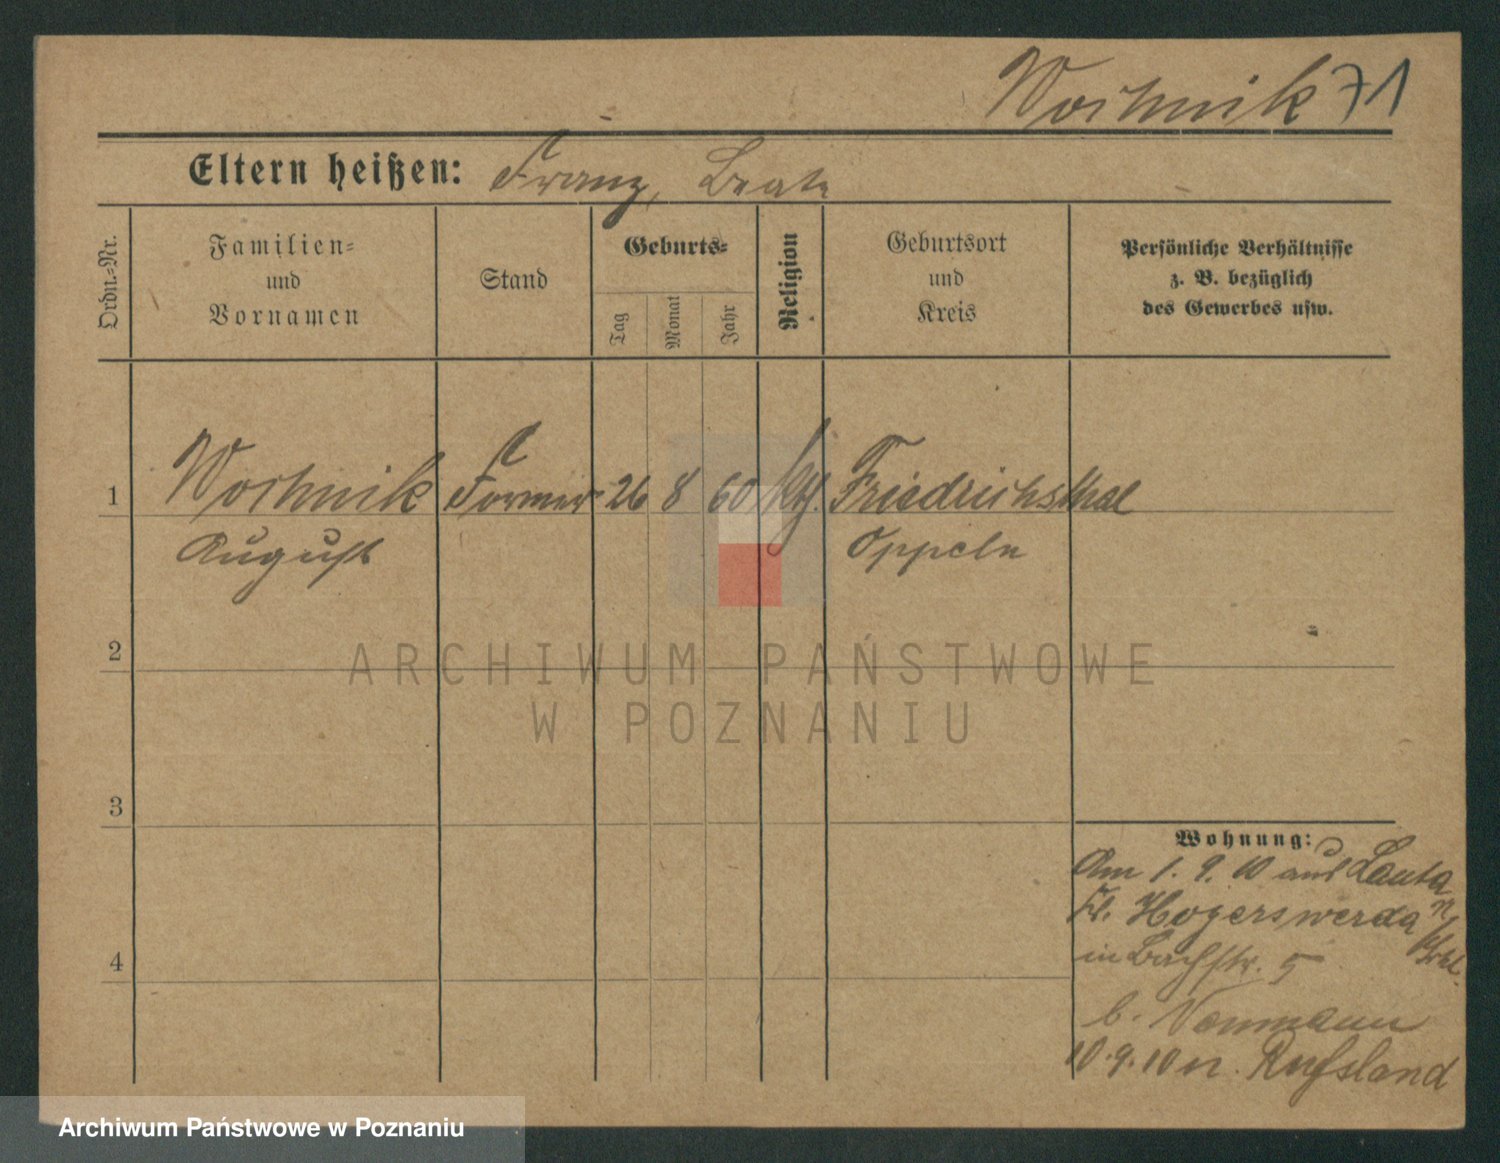 Wochnik 71
Eltern heißen: Franz, Beate
Ordn.-Nr.
Familien-
und
Vornamen
Stand
Geburts-
Tag
Monat
Jahr
Religion
Geburtsort
und
Kreis
Persönliche Verhältnisse
z. B. bezüglich
des Gewerbes usw.
1 Wochnik Former 26 8 60 kth. Friedrichsthal
August Oppeln
2
ARCHIWUM PAŃSTWOWE
W POZNANIU
3
Wohnung:
Am 1. 9. 10 aus Lauta
Kr. Hoyerswerda n/
in Bachstr. 5
b. Neumann
10.9.10 n. Russland
4
Archiwum Państwowe w Poznaniu